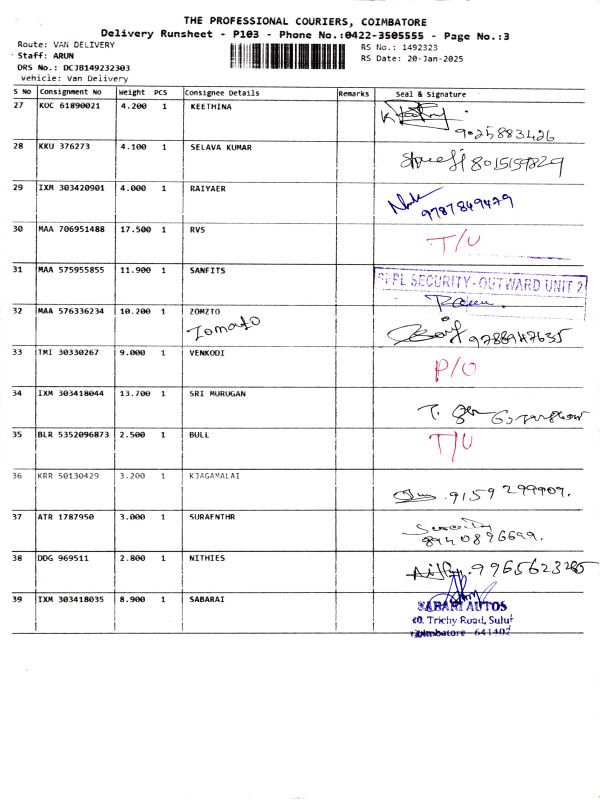 THE PROFESSIONAL COURIERS, COIMBATORE
Delivery Runsheet - P103 - Phone No.:0422-3505555 - Page No.:3
Route: VAN DELIVERY RS No.: 1492323
Staff: ARUN RS Date: 20-Jan-2025
DRS No.: DCJB149232303
Vehicle: Van Delivery
S No Consignment No Weight PCS Consignee Details Remarks Seal & Signature
27 KOC 61890021 4.200 1 KEETHINA
9025883426
28 KKU 376273 4.100 1 SELAVA KUMAR
8015159829
29 IXM 303420901 4.000 1 RAIYAER
9787849479
30 MAA 706951488 17.500 1 RVS
T/U
31 MAA 575955855 11.900 1 SANFITS
SECURITY - OUTWARD UNIT 2
32 MAA 576336234 10.200 1 ZOMZTO
Zomato 9788947635
33 TMI 30330267 9.000 1 VENKODI
P/O
34 IXM 303418044 13.700 1 SRI MURUGAN
35 BLR 5352096873 2.500 1 BULL
T/U
36 KRR 50130429 3.200 1 KJAGAMALAI
9159299909.
37 ATR 1787950 3.000 1 SURAENTHR
8940896699.
38 DDG 969511 2.800 1 NITHIES
39 IXM 303418035 8.900 1 SABARAI
SABARI AUTOS
Trichy Road, Sulur
Coimbatore 641402